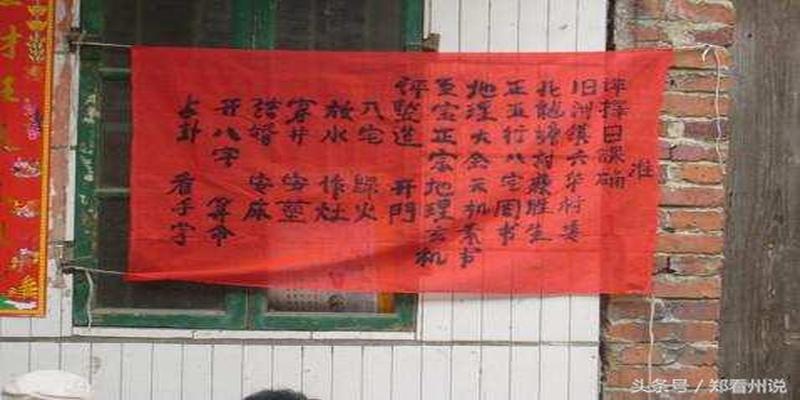 评择日课确准
旧洲镇六华村委
塘村蘇胜生
正五行八宅周书
地理大全天机素书
至宝正宗地理玄机
评竖造 开門
八宅 火
放水 作灶
穿井 安
结婚 安床
开八字 算命
占卦 看手字
才旺
头条号／郑看州说